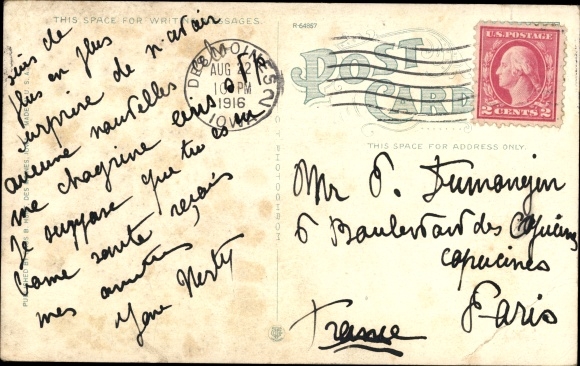 THIS SPACE FOR WRITING MESSAGES.
suis de
plus en plus
surprise de n'avoir
aucune nouvelles
me chagrine
Je suppose que tu es en
bonne santé reçois
mes amitiés
DES MOINES
AUG 22
10 PM
1916
IOWA
R-64867
POST CARD
U.S. POSTAGE
2 CENTS 2
THIS SPACE FOR ADDRESS ONLY.
Mr P. Dumanejen
6 Boulevard des Capucines
capucines
Paris
France